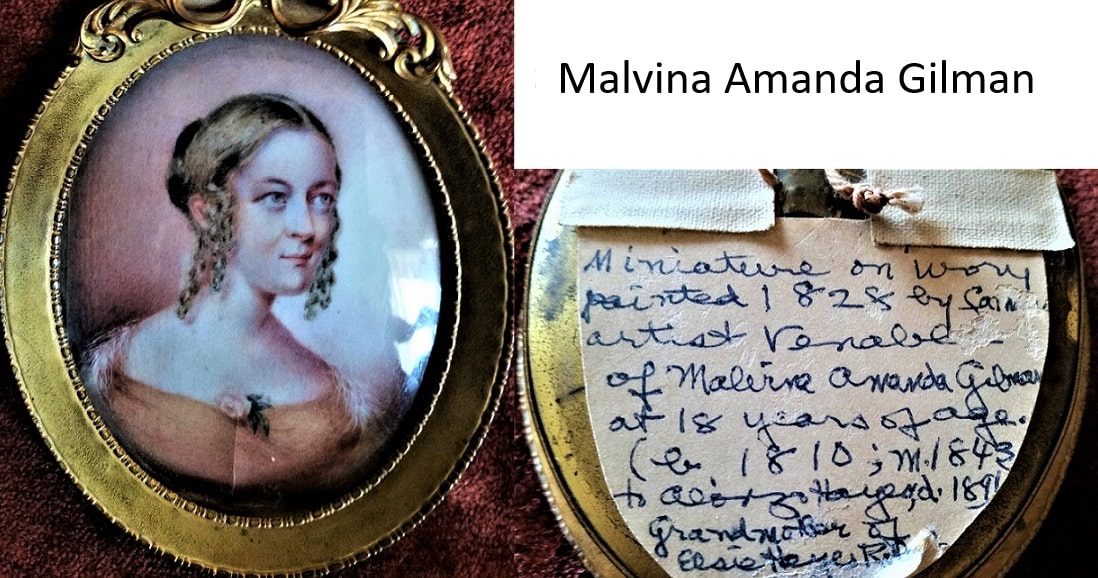 Malvina Amanda Gilman
Miniature on ivory
painted 1828 by
artist Venable
of Malvina Amanda Gilman
at 18 years of age.
(b 1810; m. 1843
to Alonzo Hayes, d. 1891
Grandmother of
Elsie Hayes